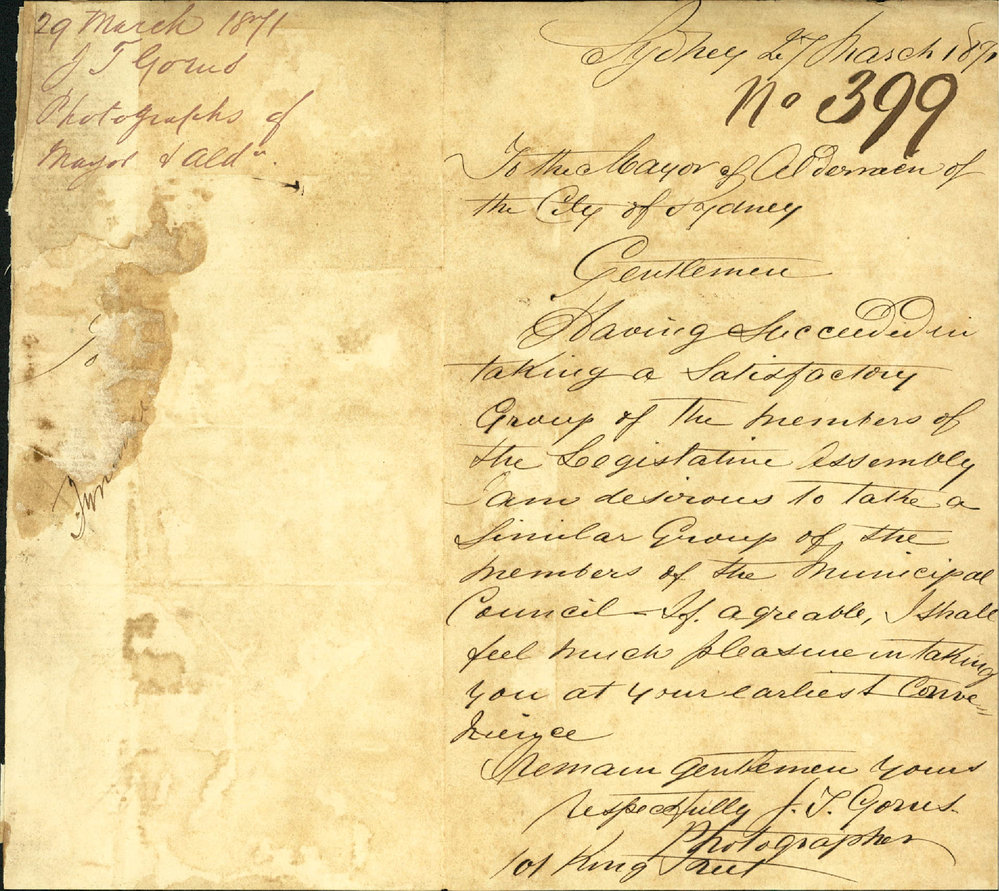 29 March 1871
J T Gorus
Photographs of
Mayor & Aldn.
To
Sydney 27 March 1871
No 399
To the Mayor & Aldermen of
the City of Sydney
Gentlemen
Having Succeeded in
taking a Satisfactory
Group of the members of
the Legislative Assembly
I am desirous to take a
Similar Group of the
members of the Municipal
Council – If agreable, I shall
feel much pleasure in taking
you at your earliest Conve-
nience
I remain Gentlemen yours
respectfully J. T. Gorus
Photographer
101 King Street